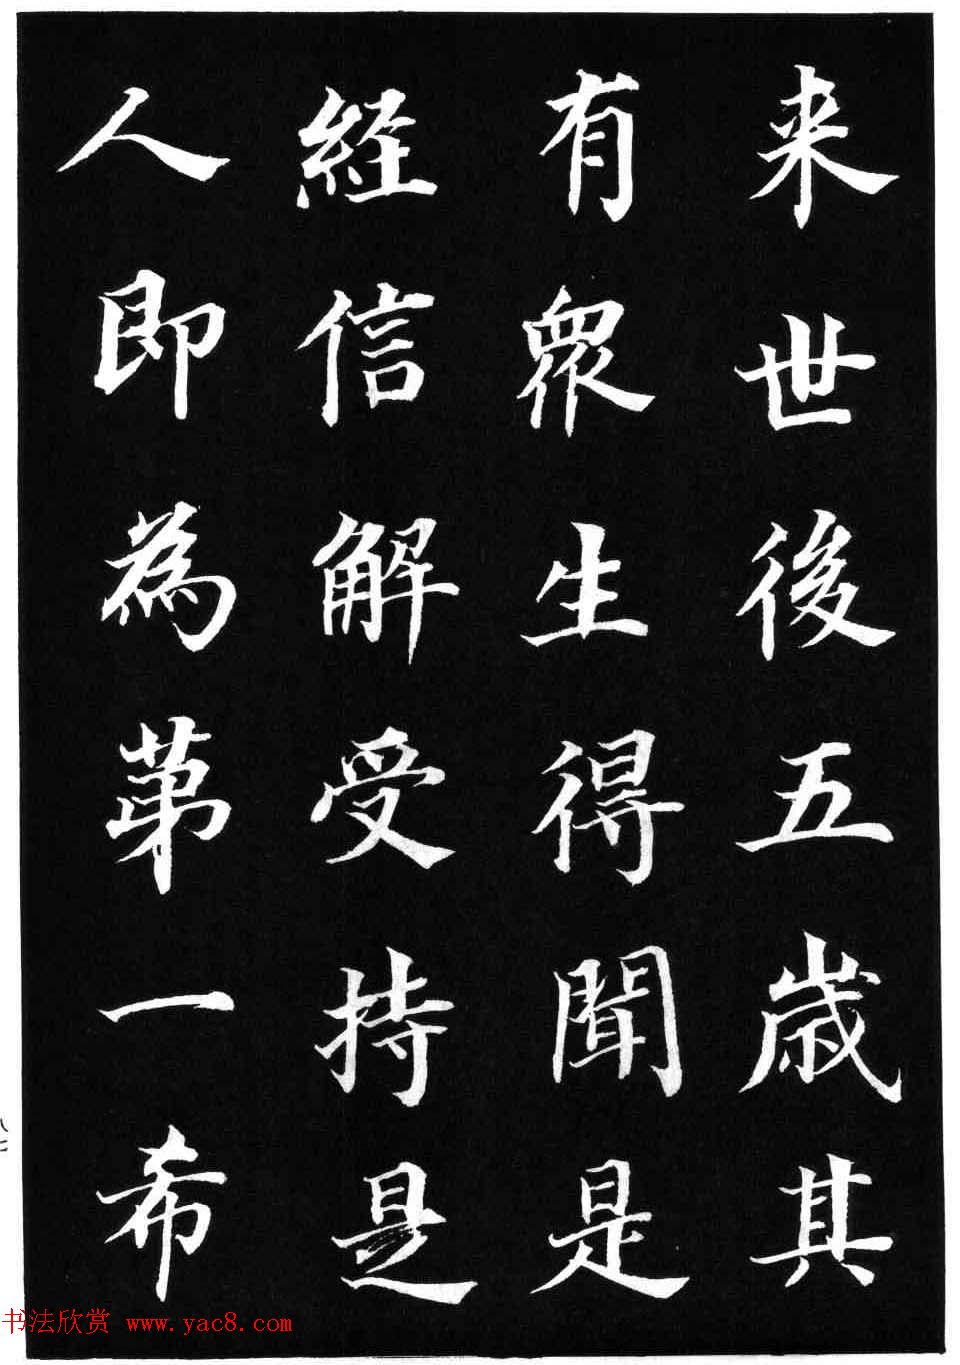 来世後五歳其
有衆生得聞是
経信解受持是
人即為苐一希
八七
书法欣赏 www.yac8.com